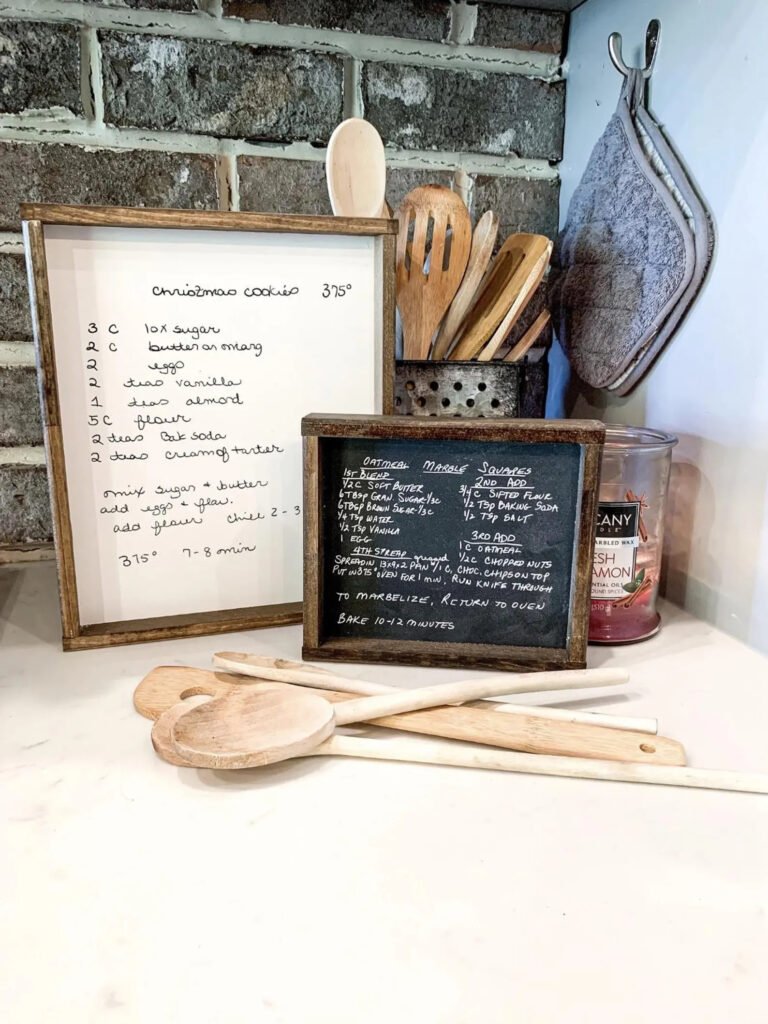 christmas cookies 375°
3 C 10x sugar
2 C butter or marg
2 eggs
2 teas vanilla
1 teas almond
5 C flour
2 teas Bak soda
2 teas cream of tarter
mix sugar & butter
add eggs & flav.
add flour chill 2-3
375° 7-8 min
OATMEAL MARBLE SQUARES
1ST BLEND
1/2 C SOFT BUTTER
6 TBSP GRAN. SUGAR-1/3C
6 TBSP BROWN SUGAR-1/3C
1/4 TSP WATER
1/2 TSP VANILLA
1 EGG
2ND ADD
3/4 C SIFTED FLOUR
1/2 TSP BAKING SODA
1/2 TSP SALT
3RD ADD
1 C OATMEAL
1/2 C CHOPPED NUTS
4TH SPREAD greased
SPREAD IN 13x9x2 PAN W/1 C, CHOC. CHIPS ON TOP
PUT IN 375° OVEN FOR 1 MIN. RUN KNIFE THROUGH
TO MARBELIZE, RETURN TO OVEN
BAKE 10-12 MINUTES
CANY
DLE
ARBLED WAX
ESH
AMON
ENTIAL OILS
OUND SPICES